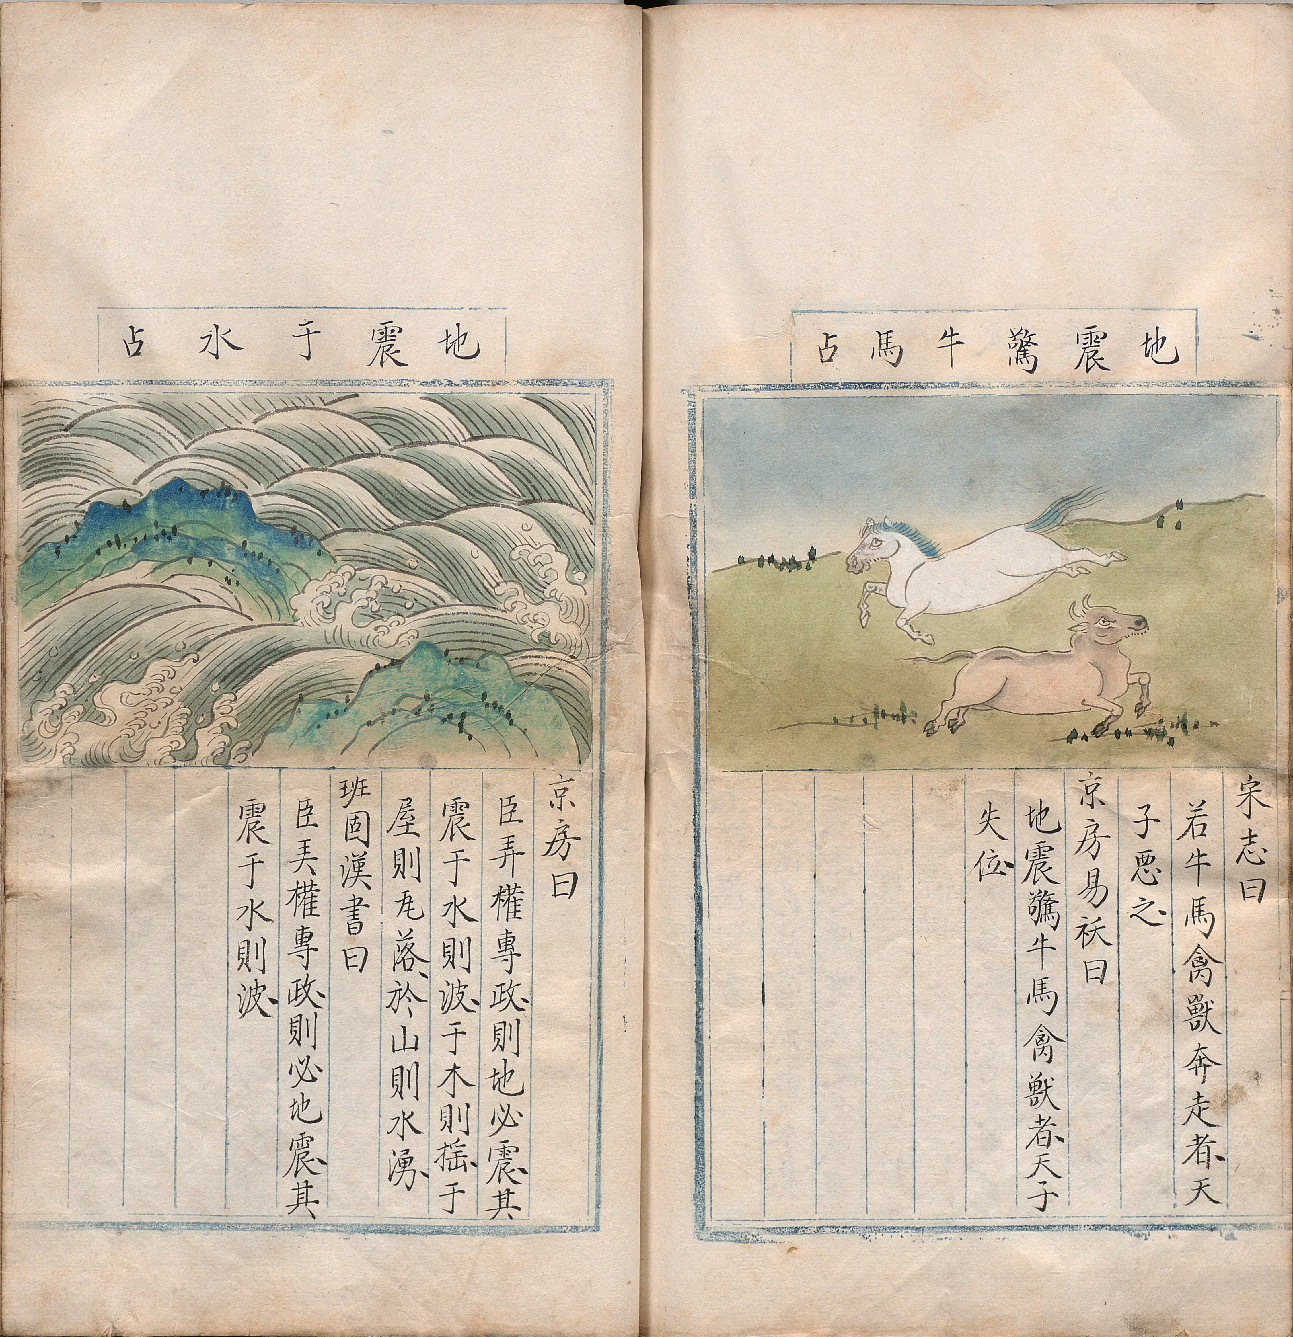 地震驚牛馬占
宋志曰
若牛馬禽獸奔走者天
子惡之
京房易祅曰
地震驚牛馬禽獸者天子
失位
地震于水占
京房曰
臣弄權專政則地必震其
震于水則波于木則揺于
屋則瓦落於山則水湧
班固漢書曰
臣美權專政則必地震其
震于水則波